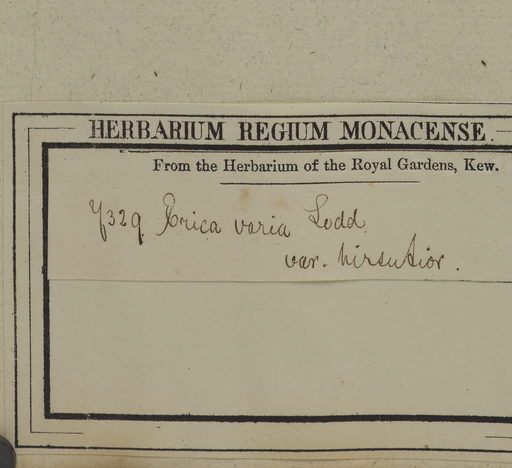 HERBARIUM REGIUM MONACENSE.
From the Herbarium of the Royal Gardens, Kew.
7329 Erica varia Lodd.
var. hirsutior.